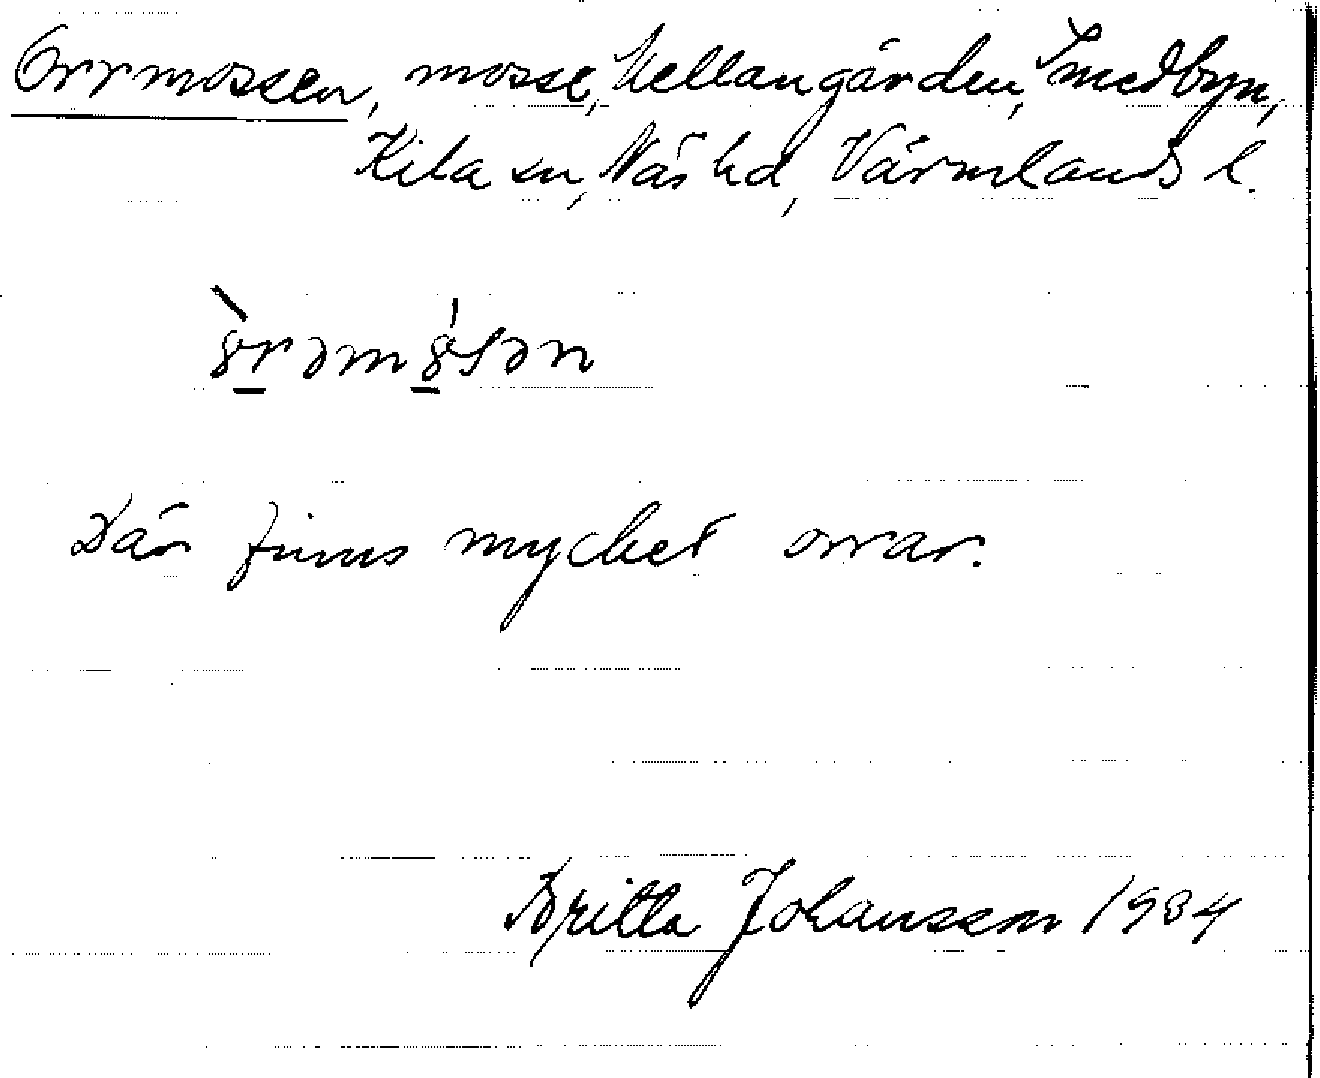 Orrmossen, mosse, Mellangården, Smedbyn,
Kila sn, Näs hd, Värmlands l.
Där finns mycket orrar.
Britta Johansson 1934